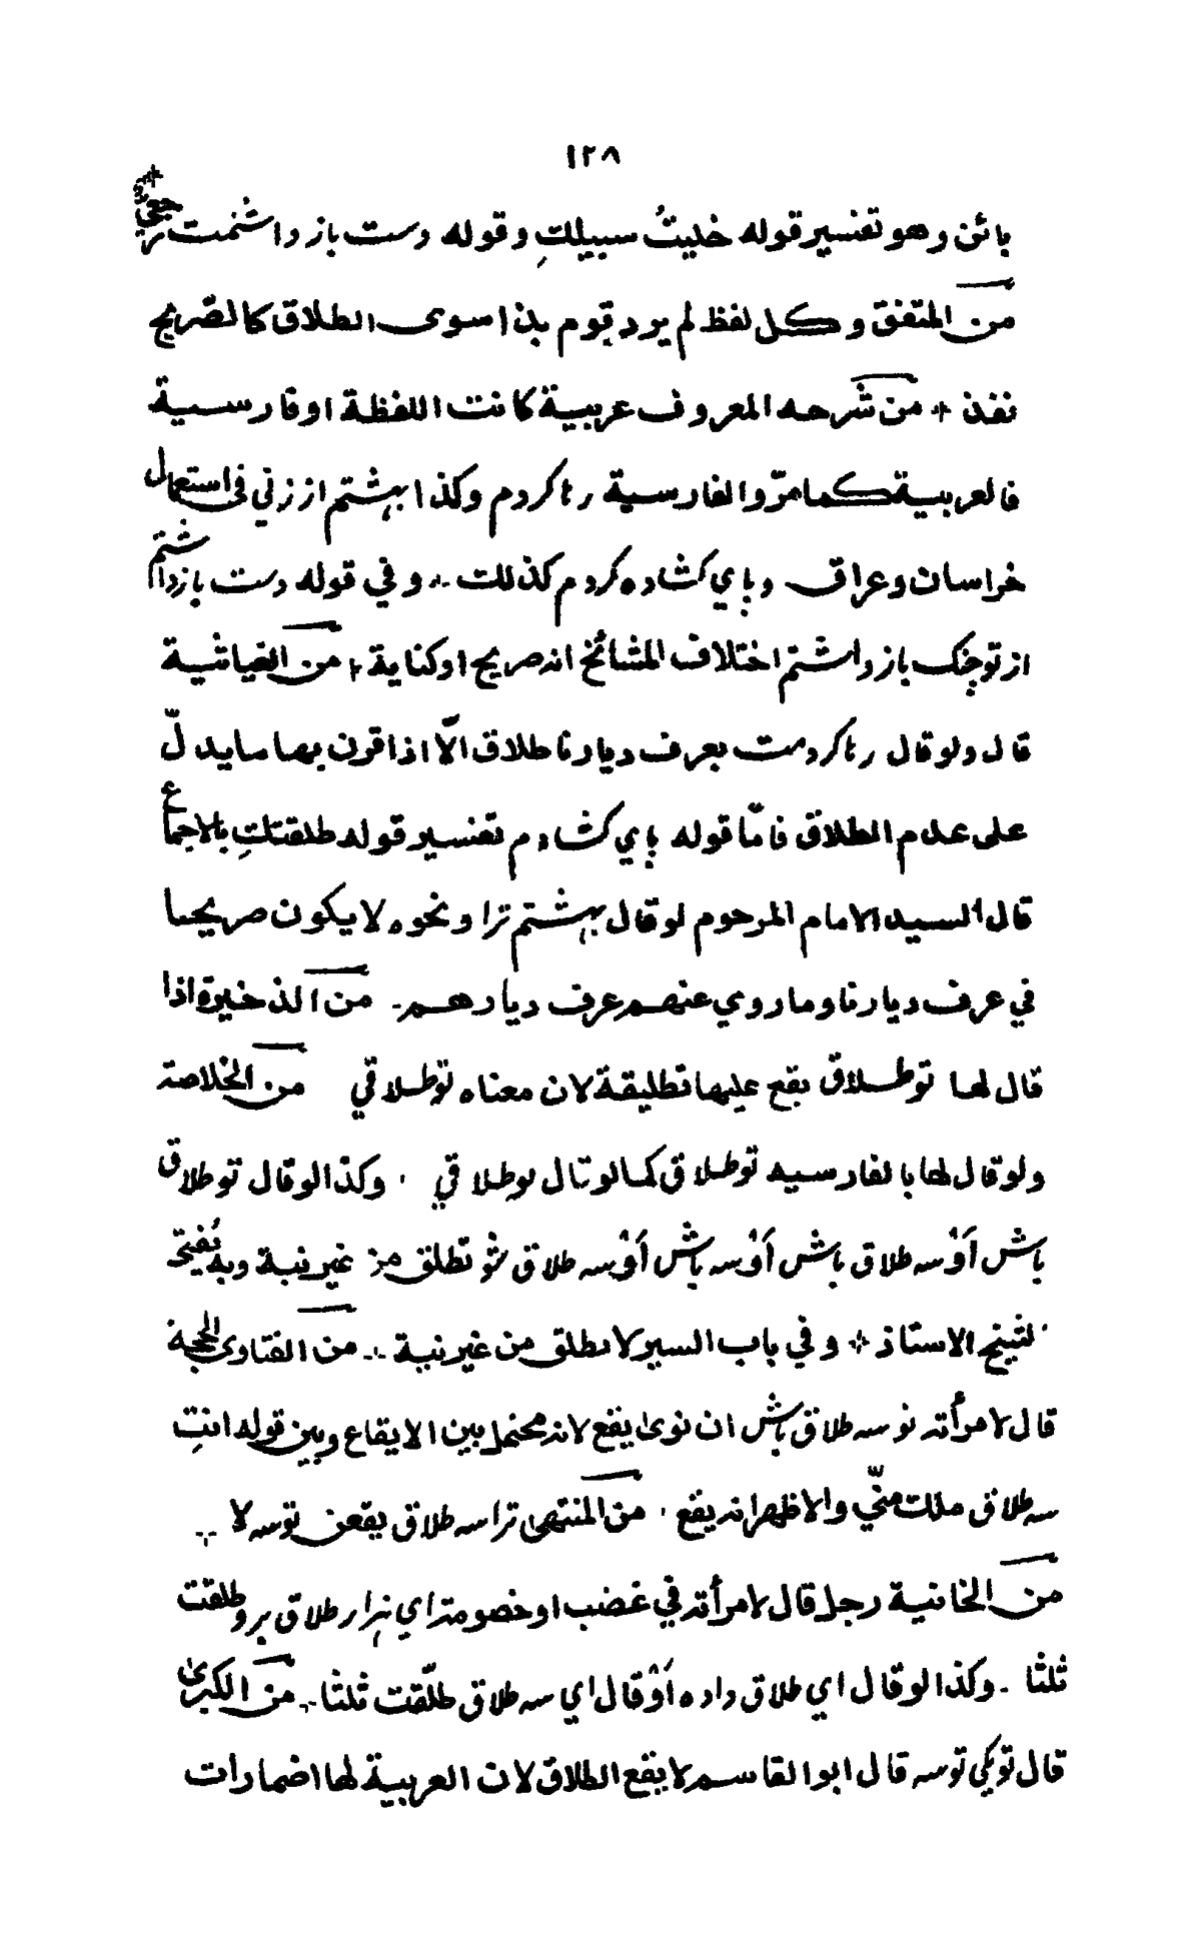 ١٢٨
بائن وهو تفسير قوله خليتُ سبيلكِ وقوله دست باز داشتمت رجعيّ
من المتفق وكل لفظ لم يرد قوم بذا سوى الطلاق كالصّريح
نفذ * من شرحه المعروف عربية كانت اللفظة او فارسية
فالعربية كما مرّ والفارسية رها كردم وكذا بهشتم از زني في استعمال
خراسان وعراق وپاي كشاده كردم كذلك .. وفي قوله دست باز داشتم
از تو چنك باز داشتم اختلاف المشائخ انه صريح او كناية * من الغياثية
قال ولو قال رها كردمت بعرف ديارنا طلاق الّا اذا قرن بها ما يدلّ
على عدم الطلاق فامّا قوله پاي كشادم تفسير قوله طلقتكِ بالاجماع
قال السيد الامام المرحوم لو قال بهشتم ترا ونحوه لا يكون صريحا
في عرف ديارنا وما روي عنهم عرف ديارهم . من الذخيرة اذا
قال لها تو طلاق يقع عليها تطليقة لان معناه تو طلاقي من الخلاصة
ولو قال لها بالفارسيه تو طلاق كما لو قال تو طلاقي . وكذا لو قال تو طلاق
باش أوْ سه طلاق باش أوْ سه باش أوْ سه طلاق شو تطلق من غير نية وبه يُفتي
الشيخ الاستاذ * وفي باب السير لا تطلق من غير نية .. من الفتاوى الحجة
قال لامرأته تو سه طلاق باش ان نوى يقع لانه محتمل بين الايقاع وبين قوله انتِ
سه طلاق ملك منّي والاظهر انه يقع . من المنتهى ترا سه طلاق يقعن تو سه لا ..
من الخانية رجل قال لامرأته في غضب او خصومة اي هزار طلاق برو طلقت
ثلثا . وكذا لو قال اي طلاق داده أوْ قال اي سه طلاق طلّقت ثلثا .. من الكبرى
قال تو يكي تو سه قال ابو القاسم لا يقع الطلاق لان العربية لها اضمارات